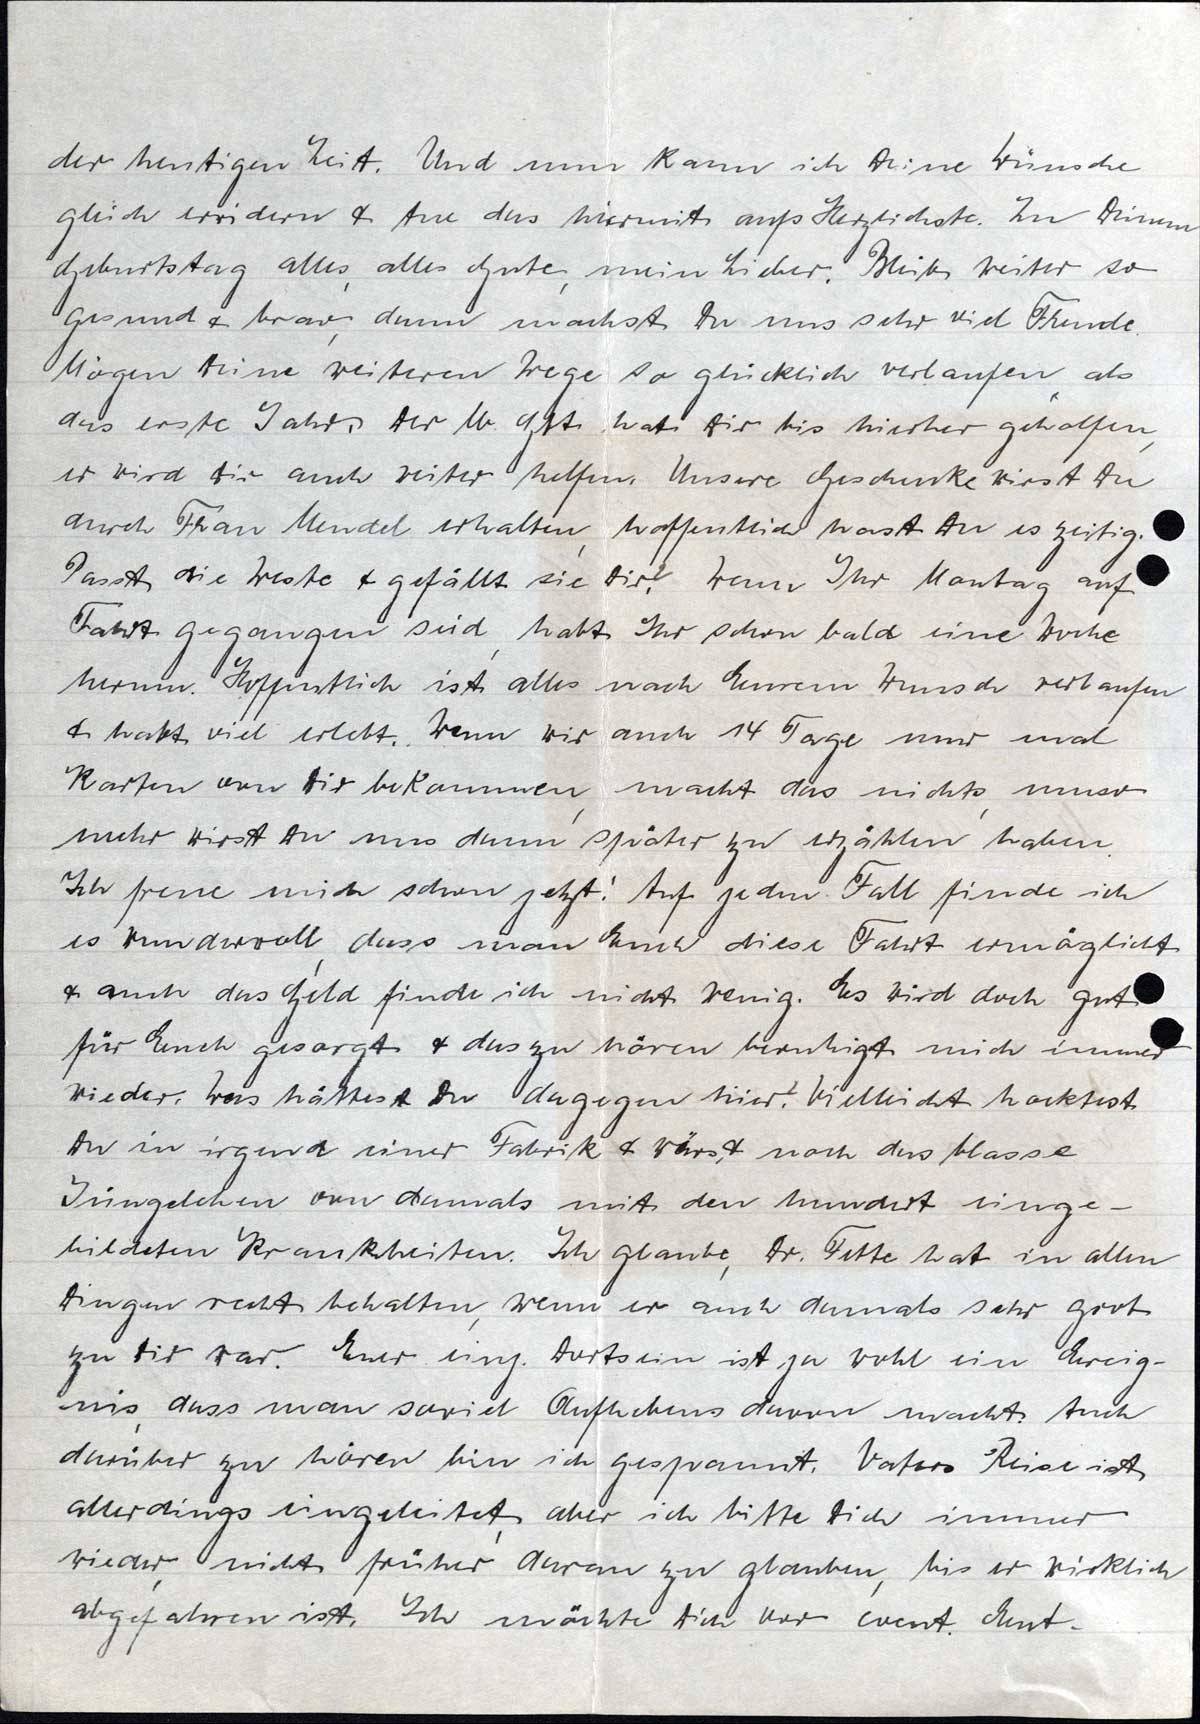 der heutigen Zeit. Und nun kann ich Deine Wünsche
gleich erwidern & tue das hiermit aufs Herzlichste. Zu Deinem
Geburtstag alles, alles Gute, mein Lieber. Bleib weiter so
gesund & brav, dann machst Du uns sehr viel Freude.
Mögen Deine weiteren Wege so glücklich verlaufen, als
das erste Jahr. Der lb. Gtt. hat Dir bis hierher geholfen,
er wird Dir auch weiter helfen. Unsere Geschenke wirst Du
durch Frau Mendel erhalten, hoffentlich hast Du es zeitig.
Passt die Weste & gefällt sie Dir? Wenn Ihr Montag auf
Fahrt gegangen seid, habt Ihr schon bald eine Woche
herum. Hoffentlich ist alles nach Eurem Wunsch verlaufen
& habt viel erlebt. Wenn wir auch 14 Tage nur mal
Karten von Dir bekommen, macht das nichts, umso
mehr wirst Du uns dann später zu erzählen haben.
Ich freue mich schon jetzt! Auf jeden Fall finde ich
es wundervoll, dass man Euch diese Fahrt ermöglicht
& auch das Geld finde ich nicht wenig. Es wird doch gut
für Euch gesorgt & das zu hören beruhigt mich immer
wieder. Was hättest Du dagegen hier? Vielleicht hocktest
Du in irgend einer Fabrik & wärst noch das blasse
Jüngelchen von damals mit den hundert einge-
bildeten Krankheiten. Ich glaube, Dr. Fette hat in allen
Dingen recht behalten, wenn er auch damals sehr grob
zu Dir war. Euer einj. Dortsein ist ja wohl ein Ereig-
nis, dass man soviel Aufhebens davon macht. Auch
darüber zu hören bin ich gespannt. Vaters Reise ist
allerdings eingeleitet, aber ich bitte Dich immer
wieder, nicht früher daran zu glauben, bis er wirklich
abgefahren ist. Ich möchte Dich vor event. Ent-